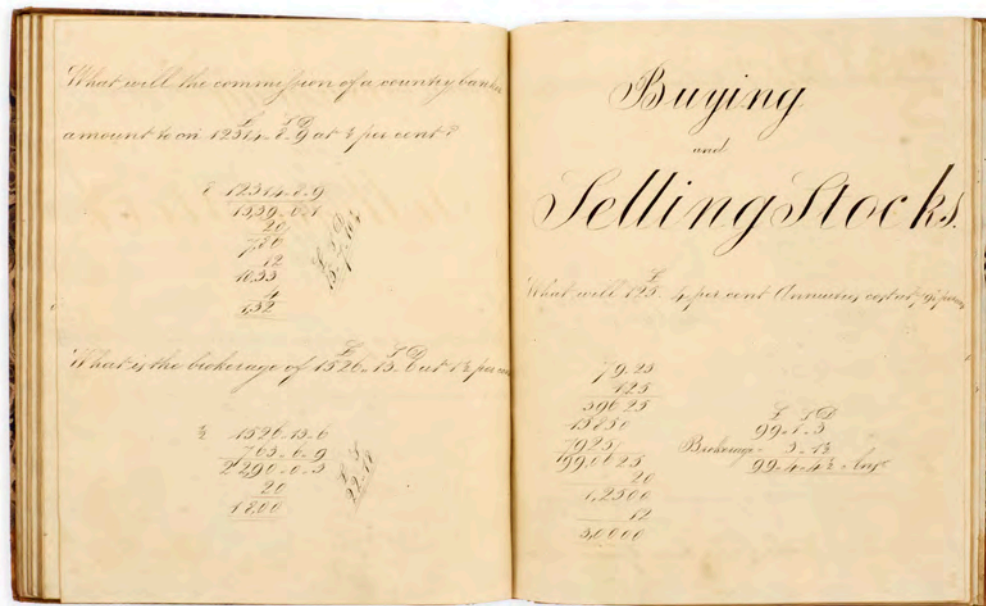 What will the commission of a country banker
£ S D
amount to on 12314 - 8 - 9 at ⅛ per cent?
8 12314 - 8 - 9
15,39 - 6 - 1
20
7,86
12
10,33
4
1,32
£ S D
15 - 7 - 10¼
£ S D
What is the brokerage of 1526 - 13 - 6 at 1½ per
½ 1526 - 13 - 6
763 - 6 - 9
22,90 - 0 - 3
20
18,00
£ S
22 - 18
Buying
and
Selling Stocks.
£
What will 125 4 per cent Annuities cost at 79¼ per
79.25
125
39625
15850
7925
99,0625
20
1,2500
12
3,0000
£ S D
99 - 1 - 3
Brokerage - 3 - 1½
99 - 4 - 4½ - Ansr